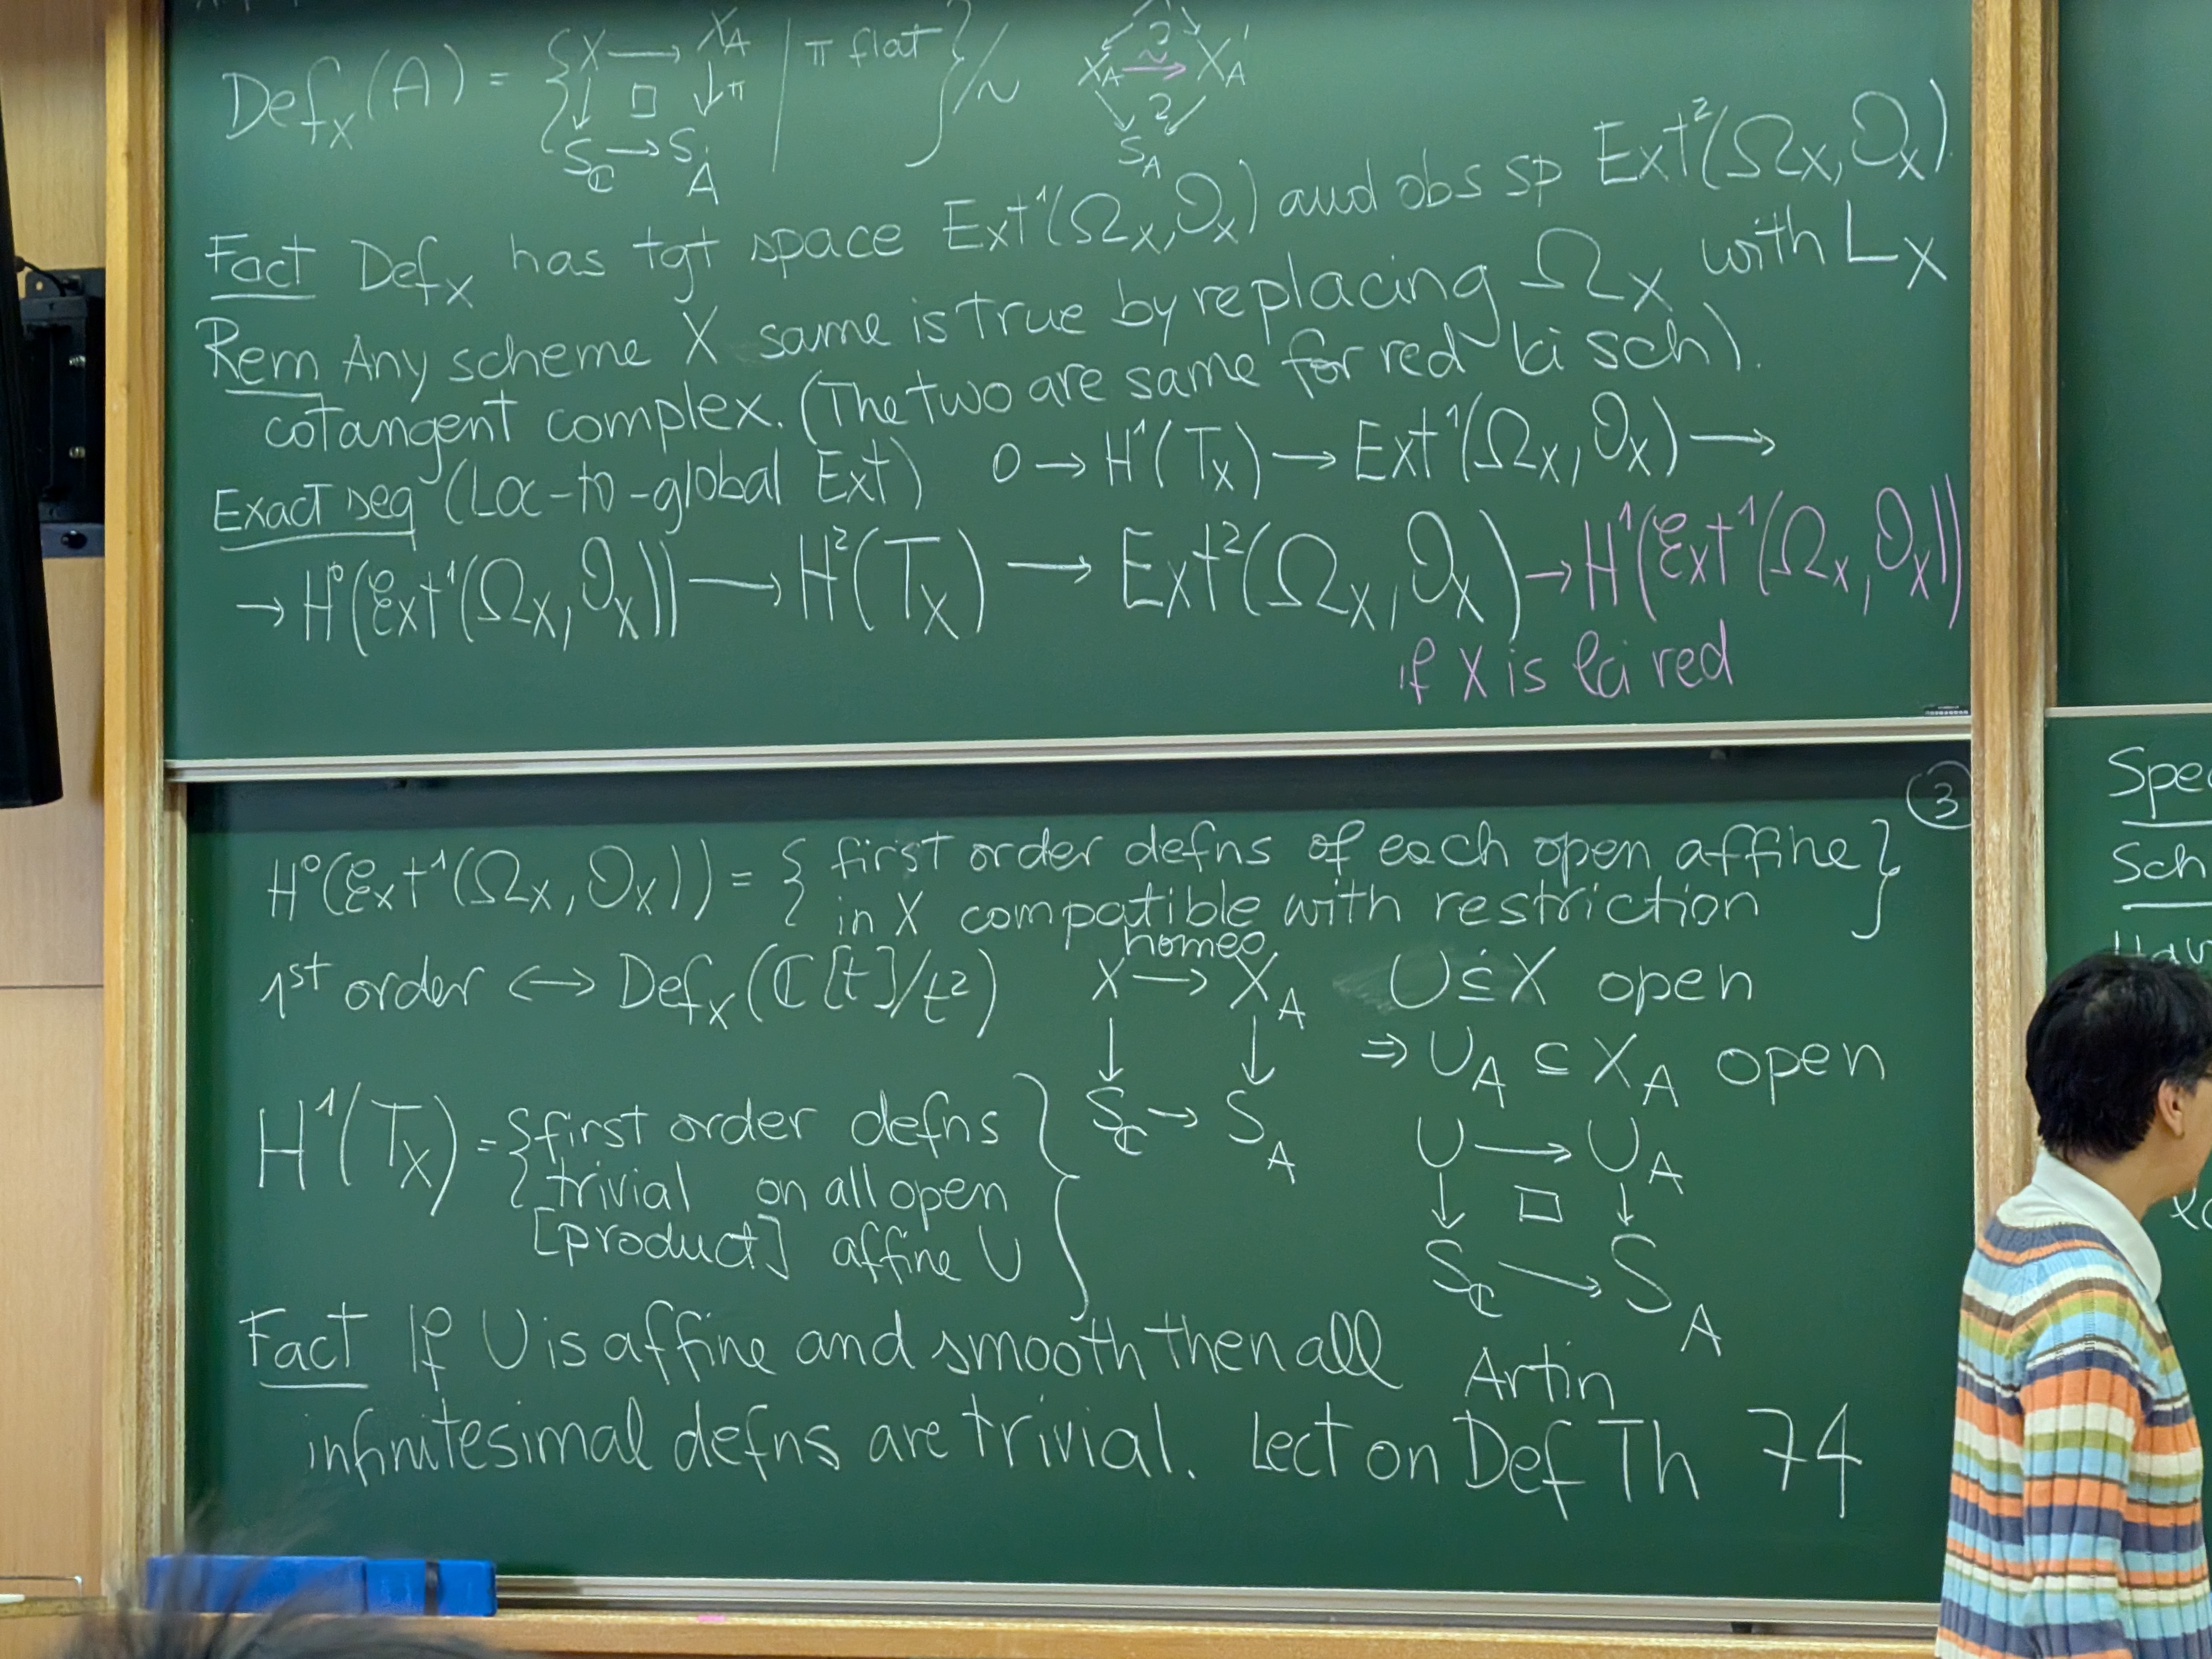 Def_X(A) = { X → X_A | π flat } / ~
↓ □ ↓π
S_ℂ → S_A
X_A → X_A'
~
S_A
Fact Def_X has tgt space Ext¹(Ω_X, O_X) and obs sp Ext²(Ω_X, O_X)
Rem Any scheme X same is true by replacing Ω_X with L_X
cotangent complex. (The two are same for red lci sch).
Exact seq (Loc-to-global Ext) 0 → H¹(T_X) → Ext¹(Ω_X, O_X) →
→ H⁰(ℰxt¹(Ω_X, O_X)) → H²(T_X) → Ext²(Ω_X, O_X) → H¹(ℰxt¹(Ω_X, O_X))
if X is lci red
③
H⁰(ℰxt¹(Ω_X, O_X)) = { first order defns of each open affine }
in X compatible with restriction
1st order ↔ Def_X(ℂ[t]/t²)
homeo
X → X_A
↓ ↓
S_ℂ → S_A
U ⊆ X open
⇒ U_A ⊆ X_A open
U → U_A
↓ □ ↓
S_ℂ → S_A
H¹(T_X) = { first order defns
trivial on all open
[product] affine U }
Fact If U is affine and smooth then all
infinitesimal defns are trivial.
Artin
Lect on Def Th 74
Spe
Sch
Har